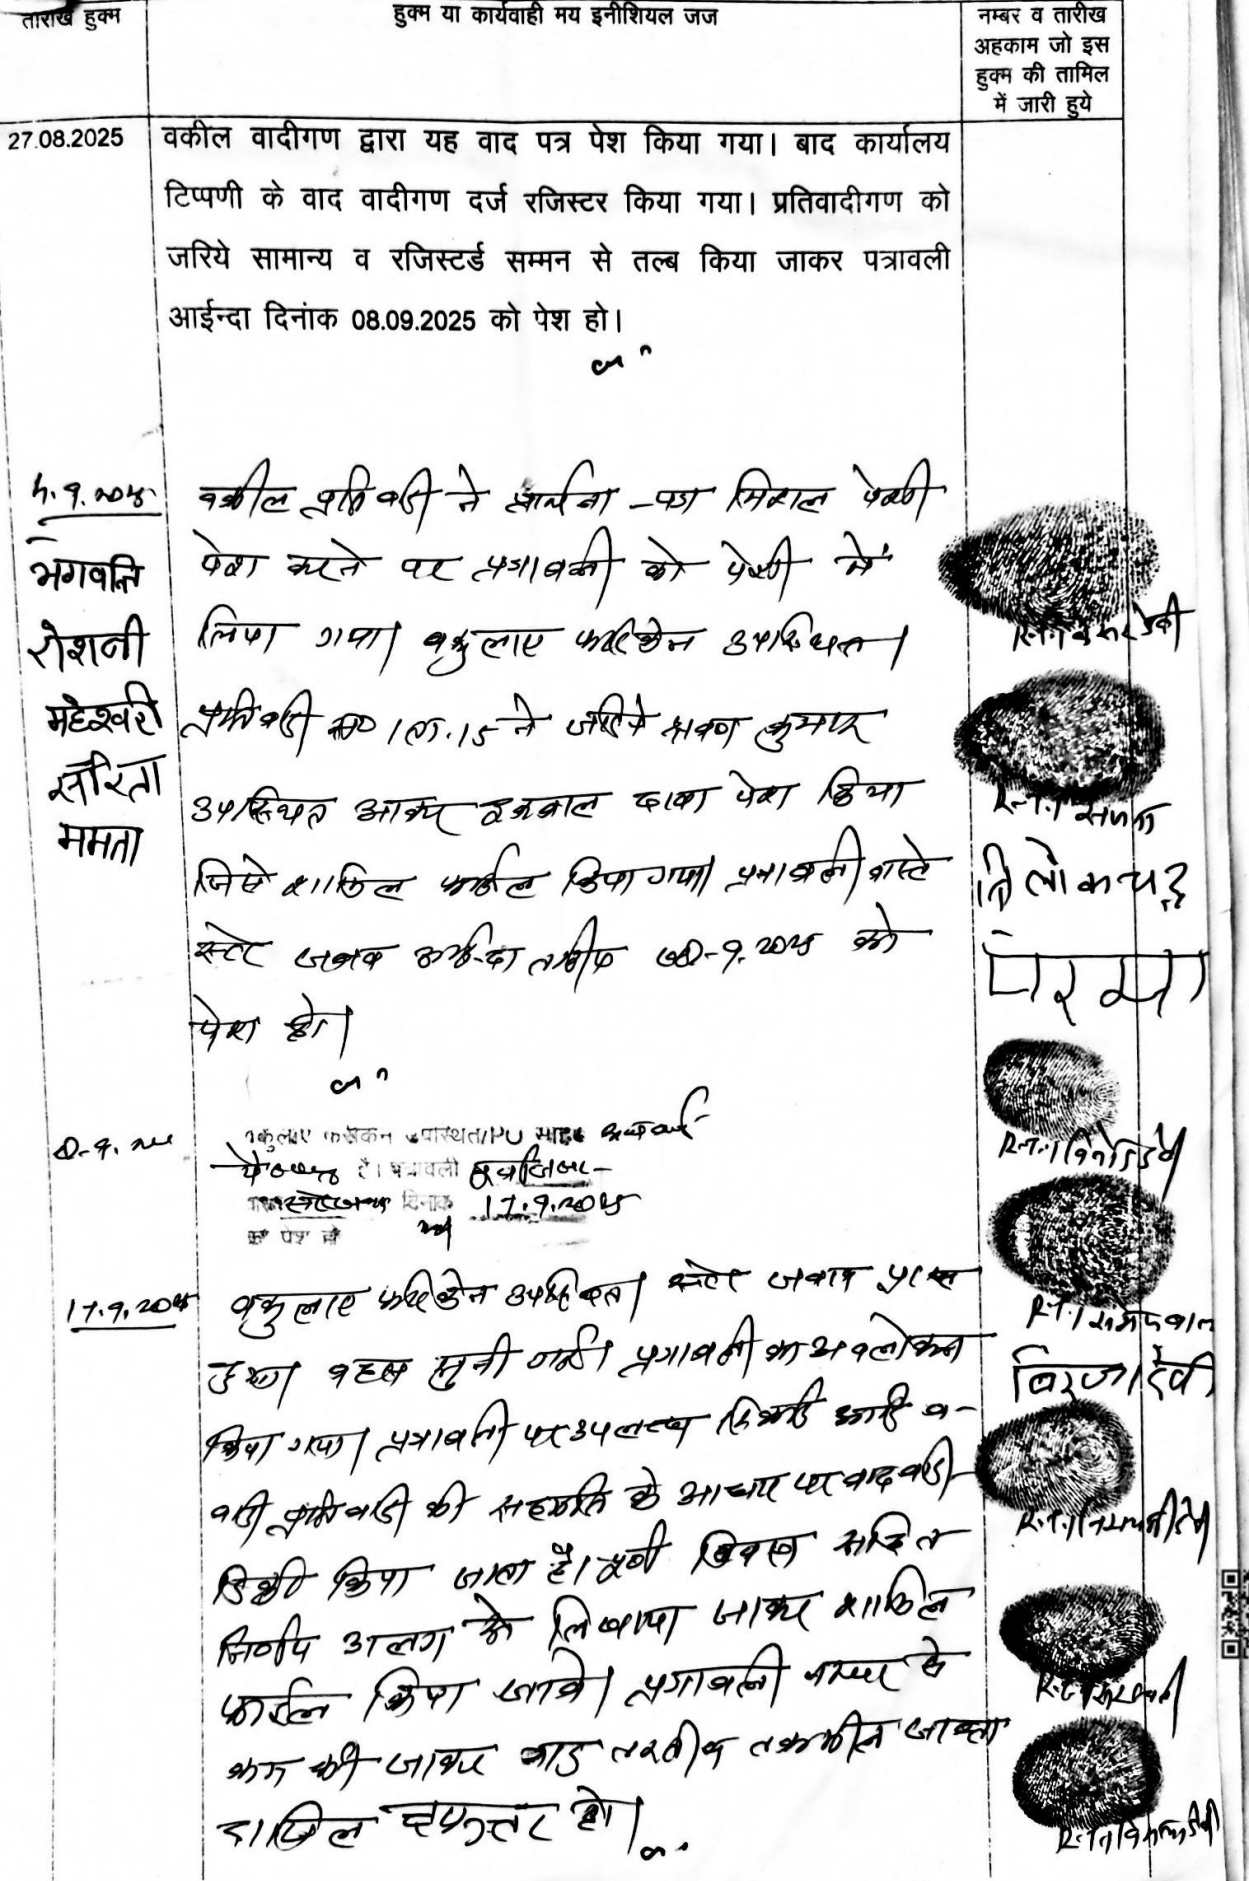 तारीख हुक्म
हुक्म या कार्यवाही मय इनीशियल जज
नम्बर व तारीख
अहकाम जो इस
हुक्म की तामिल
में जारी हुये
27.08.2025
वकील वादीगण द्वारा यह वाद पत्र पेश किया गया। बाद कार्यालय
टिप्पणी के वाद वादीगण दर्ज रजिस्टर किया गया। प्रतिवादीगण को
जरिये सामान्य व रजिस्टर्ड सम्मन से तल्ब किया जाकर पत्रावली
आईन्दा दिनांक 08.09.2025 को पेश हो।
वकील प्रतिवादी ने प्रार्थना-पत्र मिसल पेशी
पेश करने पर पत्रावली को पेशी में
लिया गया। वकुलाए फरिकेन उपस्थित।
प्रतिवादी 1 ता. 15 ने जरिये श्रवण कुमार
उपस्थित आकर इकबाल दावा पेश किया
जिसे शामिल फाईल किया गया। पत्रावली वास्ते
स्टे जवाब आईन्दा तारीख 9.2025 को
पेश हो।
भगवन्ति
रोशनी
महेश्वरी
सरिता
ममता
त्रिलोकचन्द
वकुलाए फरिकेन उपस्थित/PO साहब
है। पत्रावली
दिनांक 17.9.2025
को पेश हो
17.9.2025
वकुलाए फरिकेन उपस्थित। स्टे जवाब प्राप्त
हुआ। बहस सुनी गई। पत्रावली का अवलोकन
किया गया। पत्रावली पर उपलब्ध रिकार्ड आदि व
वादी प्रतिवादी की सहमति के आधार पर वाद वादी
डिक्री किया जाता है। पूर्ण विवरण सहित
निर्णय अलग से लिखाया जाकर शामिल
फाईल किया जावे। पत्रावली नम्बर से
कम की जाकर बाद तरतीब तकमील जाब्ता
दाखिल दफ्तर हो।
बिरजा देवी